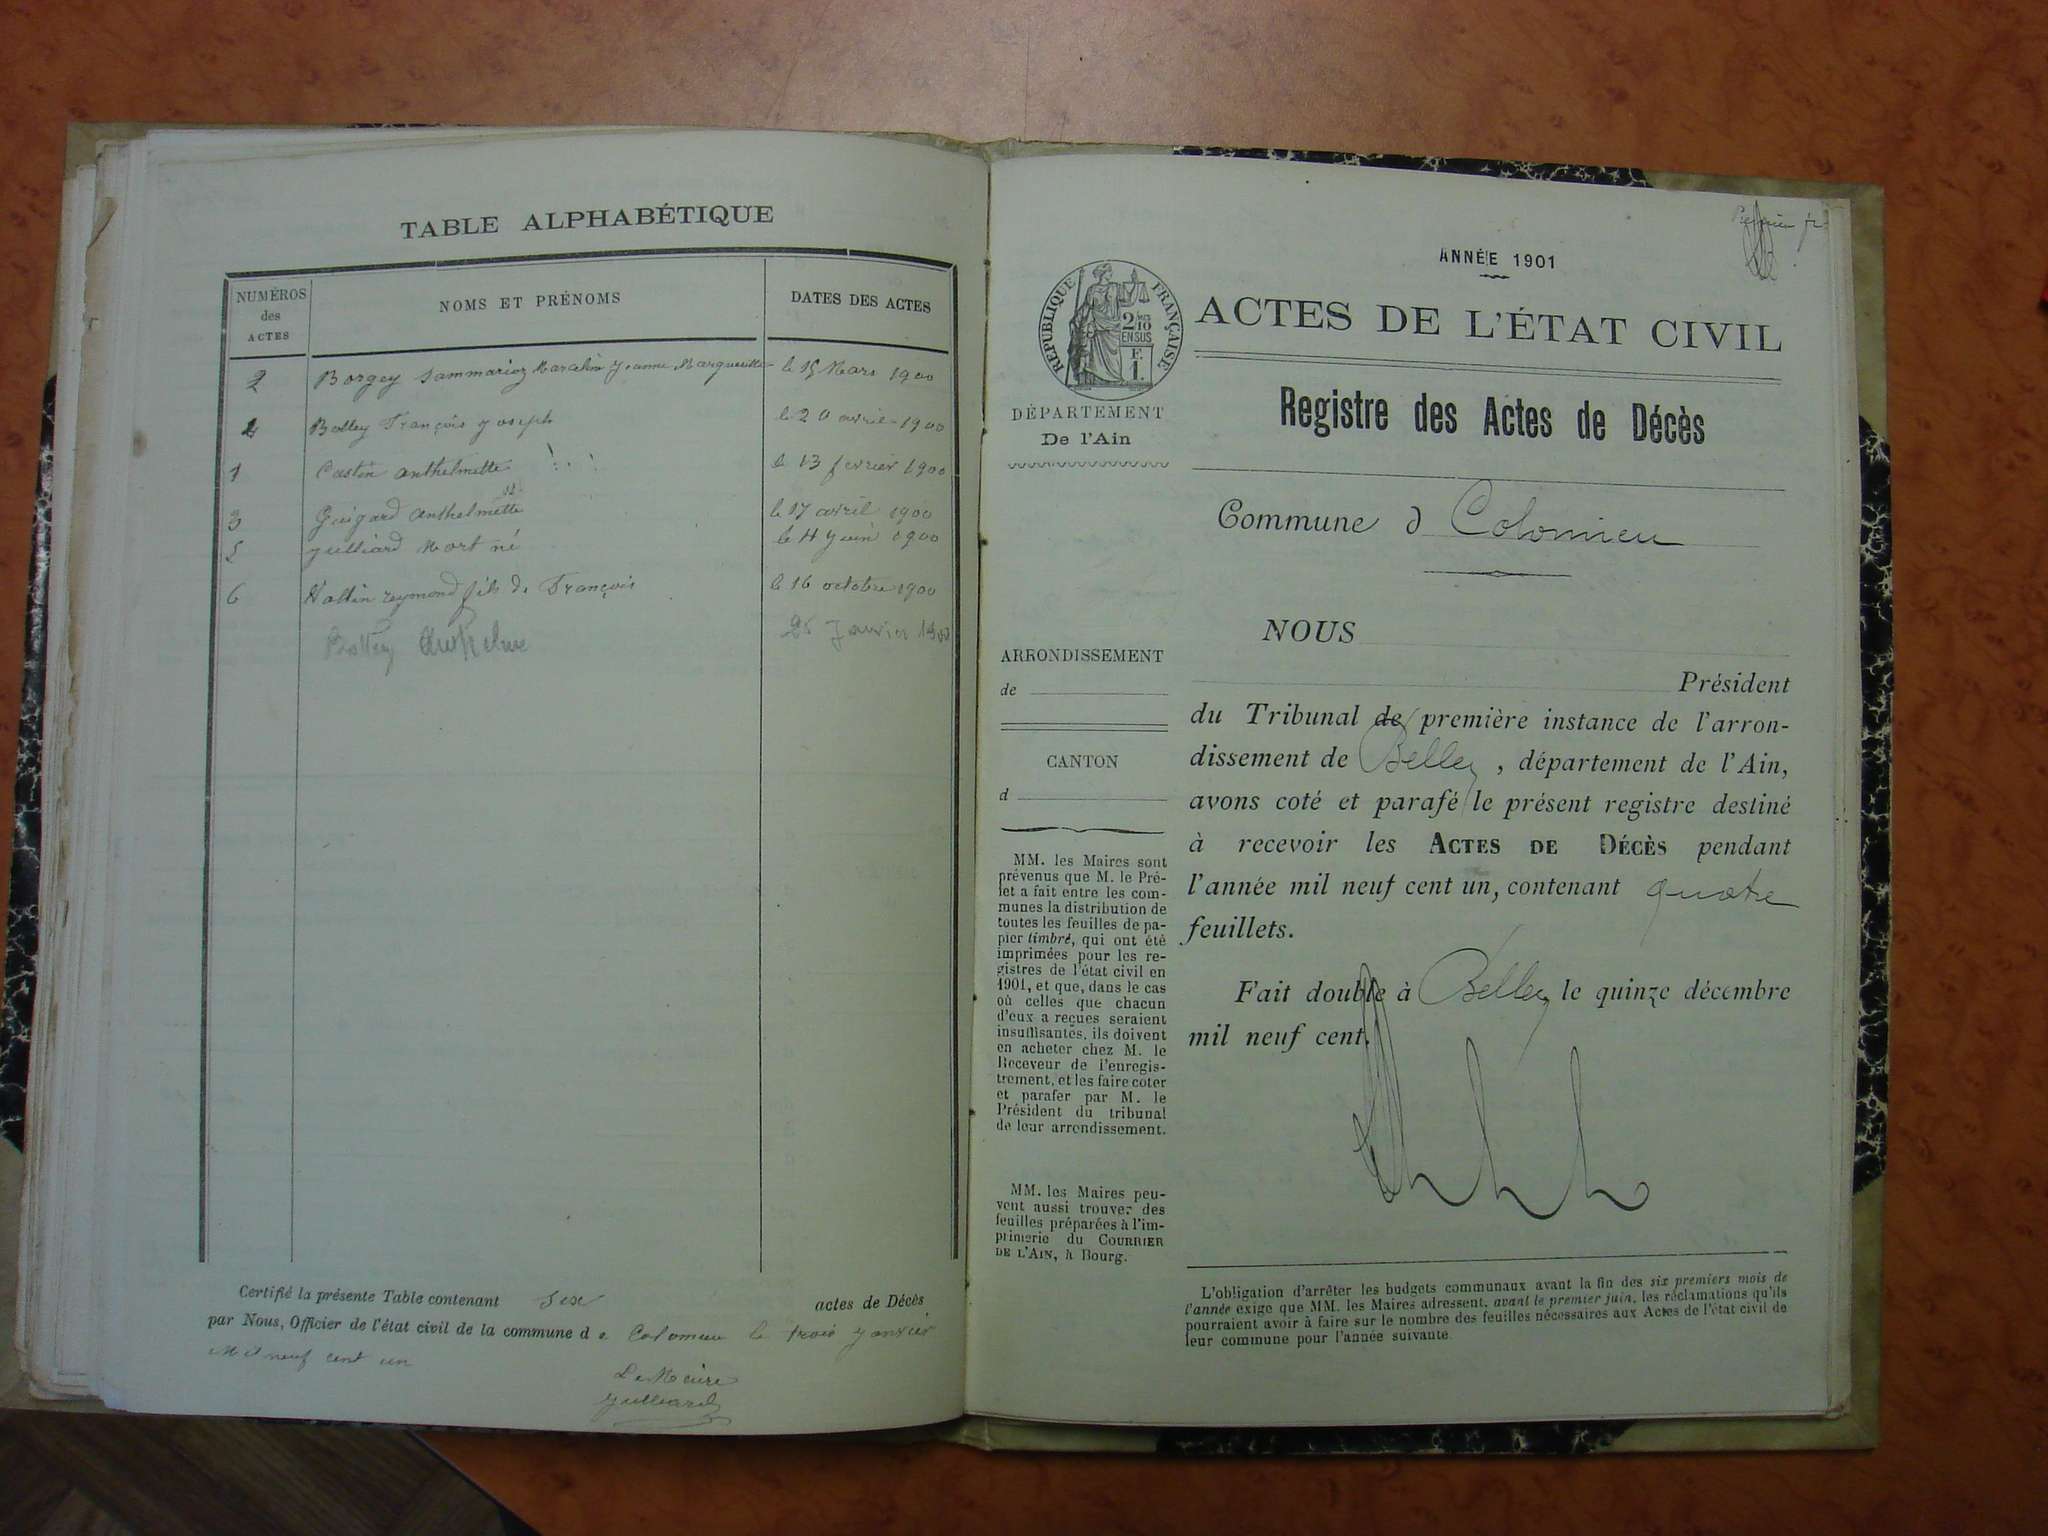 TABLE ALPHABÉTIQUE
NUMÉROS des ACTES NOMS ET PRÉNOMS DATES DES ACTES
2 Borgey Marcelin Jeanne le 15 Mars 1900
4 Bolley François Joseph le 20 avril 1900
1 Castin anthelmette le 13 fevrier 1900
3 Guigard anthelmette le 17 avril 1900
5 Julliard Mort né le 4 juin 1900
6 Vallin reymond fils de François le 16 octobre 1900
Bolley Anthelme 26 Janvier
Certifié la présente Table contenant six actes de Décès
par Nous, Officier de l'état civil de la commune de Colomieu le trois janvier
Mil neuf cent un
Le Maire
Julliard
Premier
ANNÉE 1901
ACTES DE L'ÉTAT CIVIL
RÉPUBLIQUE FRANÇAISE
2/10
EN SUS
F.
1.
DÉPARTEMENT
De l'Ain
Registre des Actes de Décès
Commune d Colomieu
ARRONDISSEMENT
de
CANTON
d
MM. les Maires sont
prévenus que M. le Pré-
fet a fait entre les com-
munes la distribution de
toutes les feuilles de pa-
pier timbré, qui ont été
imprimées pour les re-
gistres de l'état civil en
1901, et que, dans le cas
où celles que chacun
d'eux a reçues seraient
insuffisantes, ils doivent
en acheter chez M. le
Receveur de l'enregis-
trement, et les faire coter
et parafer par M. le
Président du tribunal
de leur arrondissement.
MM. les Maires peu-
vent aussi trouver des
feuilles préparées à l'im-
primerie du COURRIER
DE L'AIN, à Bourg.
NOUS
Président
du Tribunal de première instance de l'arron-
dissement de Belley, département de l'Ain,
avons coté et parafé le présent registre destiné
à recevoir les ACTES DE DÉCÈS pendant
l'année mil neuf cent un, contenant quatre
feuillets.
Fait double à Belley le quinze décembre
mil neuf cent.
L'obligation d'arrêter les budgets communaux avant la fin des six premiers mois de
l'année exige que MM. les Maires adressent, avant le premier juin, les réclamations qu'ils
pourraient avoir à faire sur le nombre des feuilles nécessaires aux Actes de l'état civil de
leur commune pour l'année suivante.